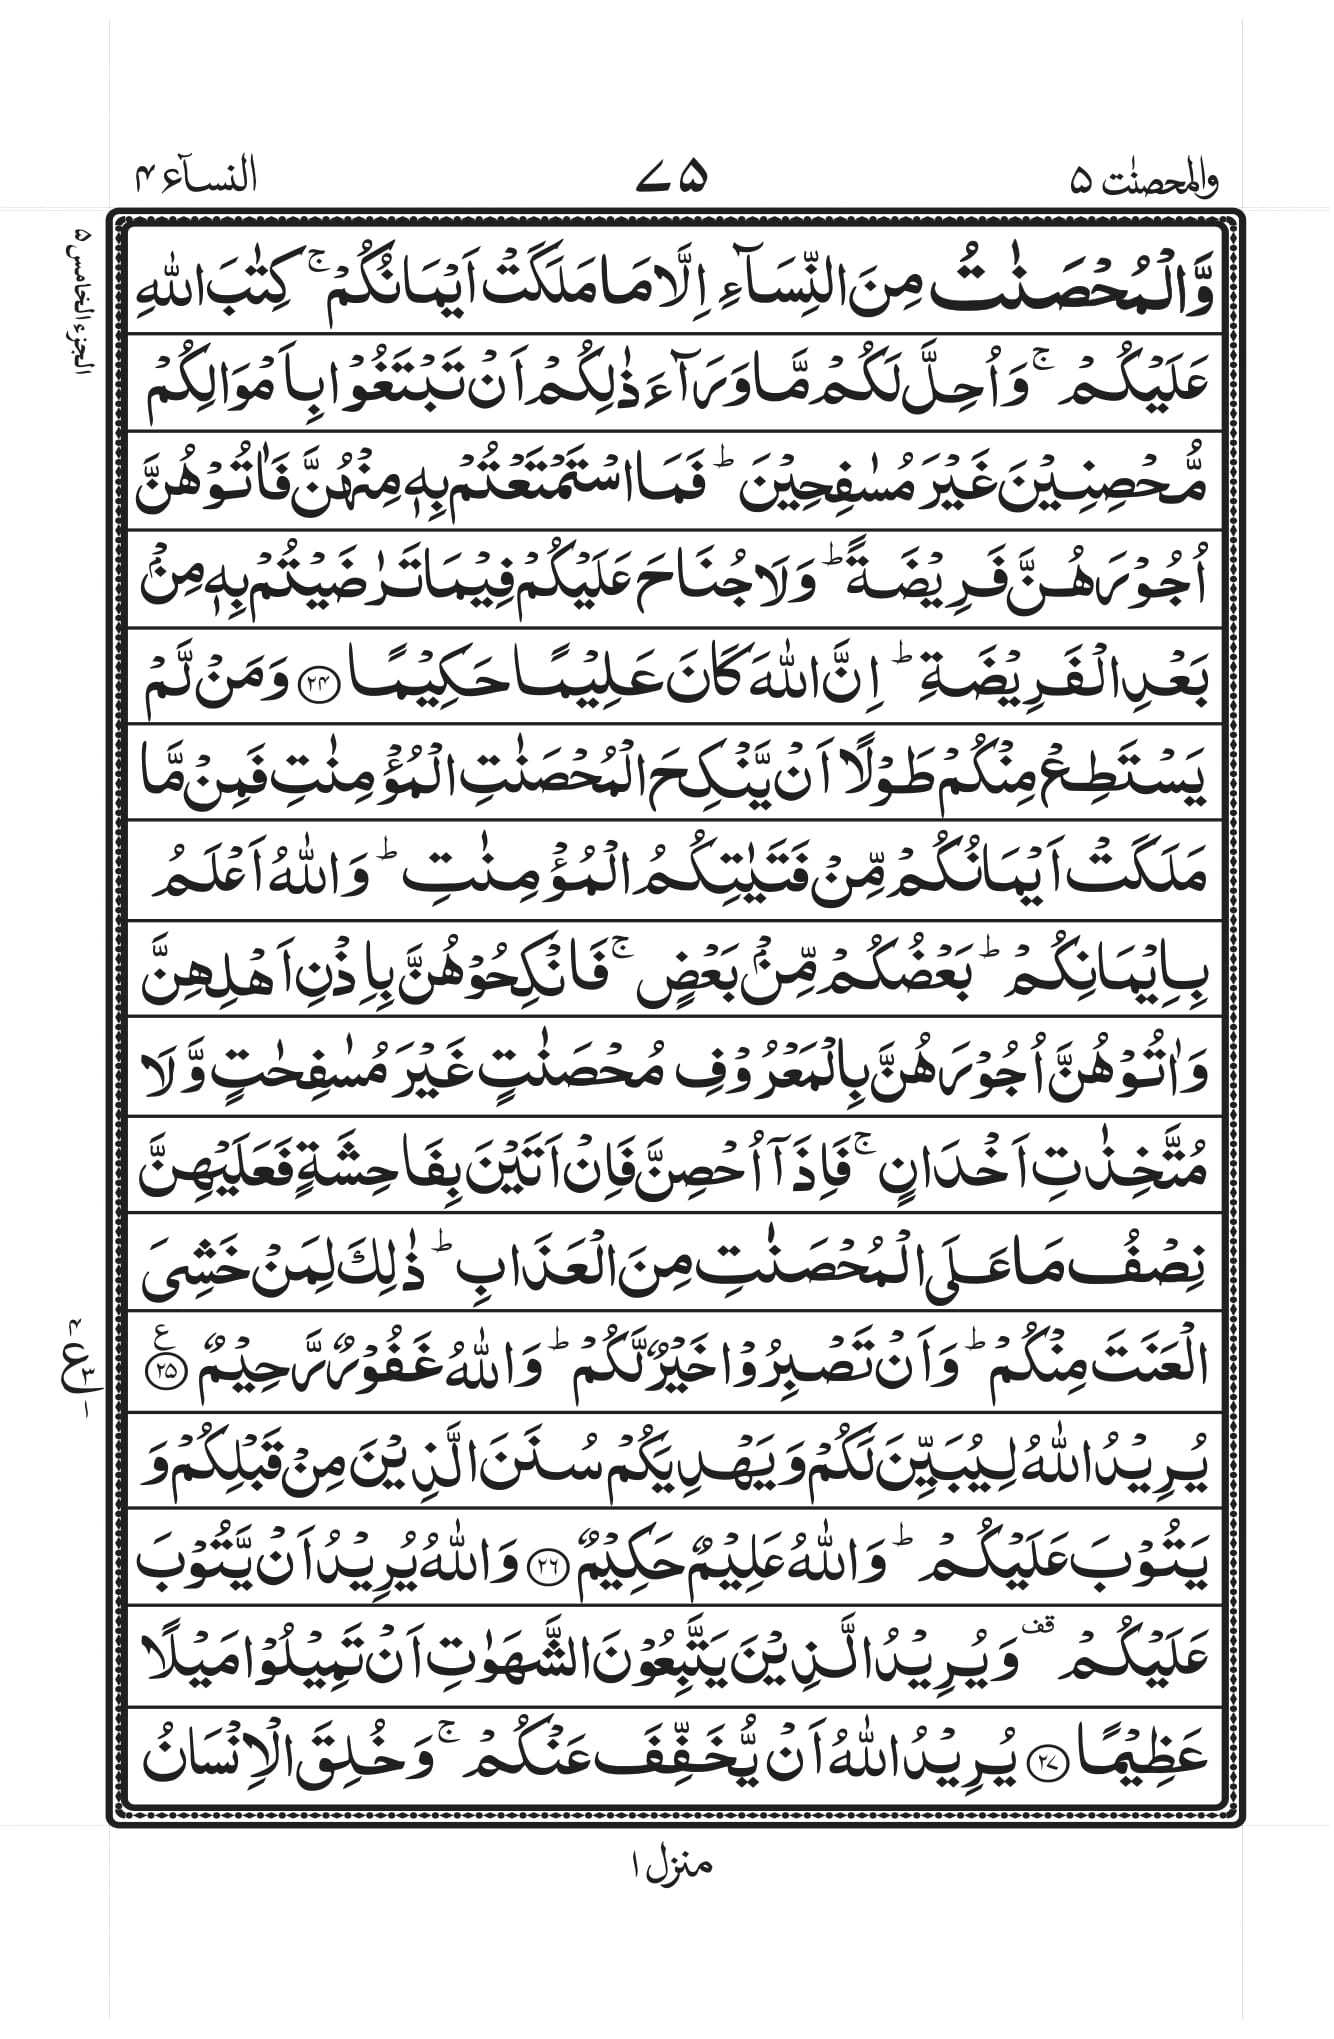 والمحصنٰت ۵
۷۵
النسآء ۴
الجزء الخامس ۵
وَّالۡمُحۡصَنٰتُ مِنَ النِّسَآءِ اِلَّا مَا مَلَكَتۡ اَيۡمَانُكُمۡ ۚ كِتٰبَ اللّٰهِ
عَلَيۡكُمۡ ۚ وَاُحِلَّ لَكُمۡ مَّا وَرَآءَ ذٰلِكُمۡ اَنۡ تَبۡتَغُوۡا بِاَمۡوَالِكُمۡ
مُّحۡصِنِيۡنَ غَيۡرَ مُسٰفِحِيۡنَ ؕ فَمَا اسۡتَمۡتَعۡتُمۡ بِهٖ مِنۡهُنَّ فَاٰتُوۡهُنَّ
اُجُوۡرَهُنَّ فَرِيۡضَةً ؕ وَلَا جُنَاحَ عَلَيۡكُمۡ فِيۡمَا تَرٰضَيۡتُمۡ بِهٖ مِنۡۢ
بَعۡدِ الۡفَرِيۡضَةِ ؕ اِنَّ اللّٰهَ كَانَ عَلِيۡمًا حَكِيۡمًا ۲۴ وَمَنۡ لَّمۡ
يَسۡتَطِعۡ مِنۡكُمۡ طَوۡلًا اَنۡ يَّنۡكِحَ الۡمُحۡصَنٰتِ الۡمُؤۡمِنٰتِ فَمِنۡ مَّا
مَلَكَتۡ اَيۡمَانُكُمۡ مِّنۡ فَتَيٰتِكُمُ الۡمُؤۡمِنٰتِ ؕ وَاللّٰهُ اَعۡلَمُ
بِاِيۡمَانِكُمۡ ؕ بَعۡضُكُمۡ مِّنۡۢ بَعۡضٍ ۚ فَانۡكِحُوۡهُنَّ بِاِذۡنِ اَهۡلِهِنَّ
وَاٰتُوۡهُنَّ اُجُوۡرَهُنَّ بِالۡمَعۡرُوۡفِ مُحۡصَنٰتٍ غَيۡرَ مُسٰفِحٰتٍ وَّلَا
مُتَّخِذٰتِ اَخۡدَانٍ ۚ فَاِذَاۤ اُحۡصِنَّ فَاِنۡ اَتَيۡنَ بِفَاحِشَةٍ فَعَلَيۡهِنَّ
نِصۡفُ مَا عَلَى الۡمُحۡصَنٰتِ مِنَ الۡعَذَابِ ؕ ذٰلِكَ لِمَنۡ خَشِىَ
الۡعَنَتَ مِنۡكُمۡ ؕ وَاَنۡ تَصۡبِرُوۡا خَيۡرٌ لَّكُمۡ ؕ وَاللّٰهُ غَفُوۡرٌ رَّحِيۡمٌ ۲۵ ع
۴ ع ۳ ۱
يُرِيۡدُ اللّٰهُ لِيُبَيِّنَ لَكُمۡ وَيَهۡدِيَكُمۡ سُنَنَ الَّذِيۡنَ مِنۡ قَبۡلِكُمۡ وَ
يَتُوۡبَ عَلَيۡكُمۡ ؕ وَاللّٰهُ عَلِيۡمٌ حَكِيۡمٌ ۲۶ وَاللّٰهُ يُرِيۡدُ اَنۡ يَّتُوۡبَ
عَلَيۡكُمۡ قف وَيُرِيۡدُ الَّذِيۡنَ يَتَّبِعُوۡنَ الشَّهَوٰتِ اَنۡ تَمِيۡلُوۡا مَيۡلًا
عَظِيۡمًا ۲۷ يُرِيۡدُ اللّٰهُ اَنۡ يُّخَفِّفَ عَنۡكُمۡ ۚ وَخُلِقَ الۡاِنۡسَانُ
منزل ۱